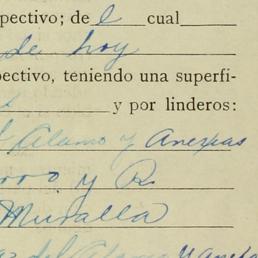 pectivo; de l cual
de hoy
pectivo, teniendo una superfi-
y por linderos:
Alamo y Anexas
y R.
Muralla
del Alamo y Anexas